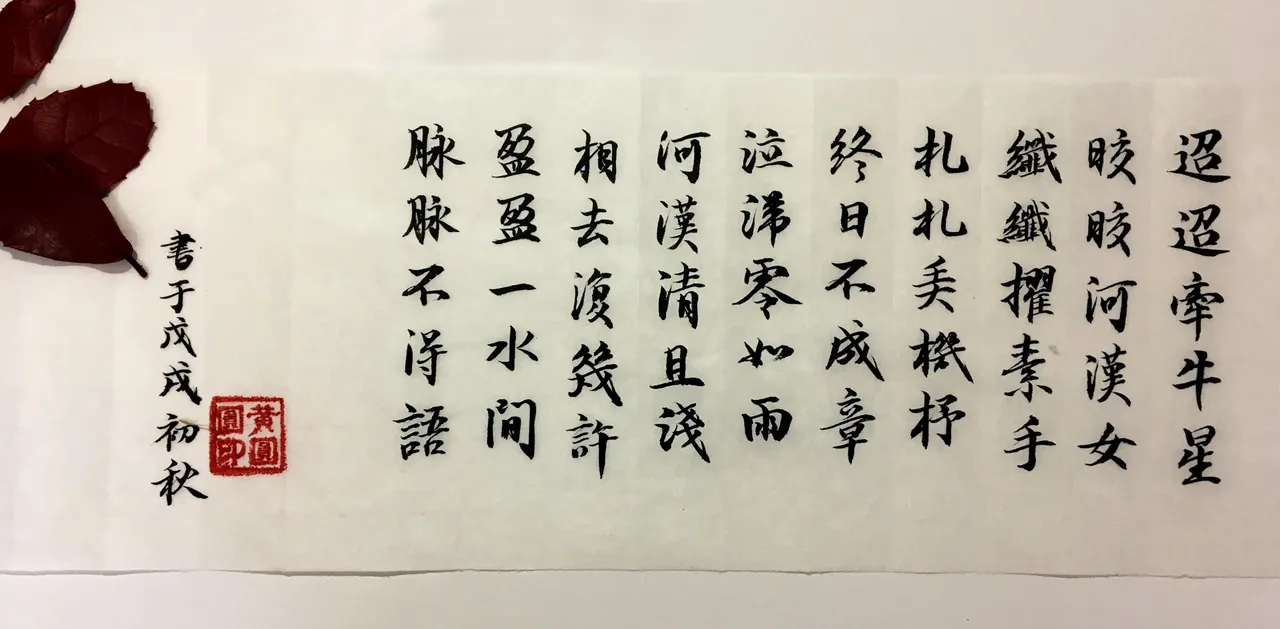 迢迢牽牛星
晈晈河漢女
纖纖擢素手
札札弄機杼
終日不成章
泣涕零如雨
河漢清且淺
相去復幾許
盈盈一水間
脉脉不得語
書于戊戌初秋
黃圓圓印